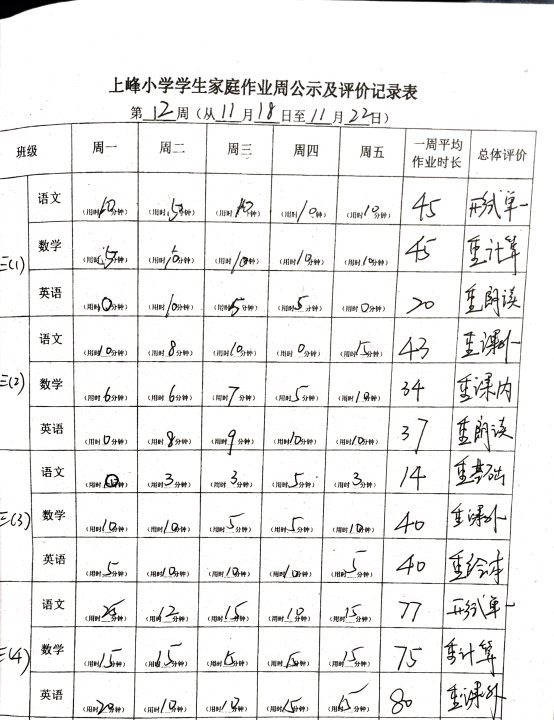 上峰小学学生家庭作业周公示及评价记录表
第12周（从11月18日至11月22日）
班级 周一 周二 周三 周四 周五 一周平均作业时长 总体评价
三(1) 语文 （用时10分钟） （用时5分钟） （用时10分钟） （用时10分钟） （用时10分钟） 45 形式单一
数学 （用时5分钟） （用时10分钟） （用时10分钟） （用时10分钟） （用时10分钟） 45 重计算
英语 （用时0分钟） （用时10分钟） （用时5分钟） （用时5分钟） （用时0分钟） 20 重朗读
三(2) 语文 （用时10分钟） （用时8分钟） （用时10分钟） （用时0分钟） （用时15分钟） 43 重课外
数学 （用时6分钟） （用时6分钟） （用时7分钟） （用时5分钟） （用时10分钟） 34 重课内
英语 （用时0分钟） （用时8分钟） （用时9分钟） （用时10分钟） （用时10分钟） 37 重朗读
三(3) 语文 （用时分钟） （用时3分钟） （用时3分钟） （用时5分钟） （用时3分钟） 14 重基础
数学 （用时10分钟） （用时10分钟） （用时5分钟） （用时5分钟） （用时10分钟） 40 重课外
英语 （用时5分钟） （用时10分钟） （用时10分钟） （用时10分钟） （用时5分钟） 40 重绘本
三(4) 语文 （用时25分钟） （用时12分钟） （用时15分钟） （用时10分钟） （用时15分钟） 77 形式单一
数学 （用时15分钟） （用时15分钟） （用时15分钟） （用时15分钟） （用时15分钟） 75 重计算
英语 （用时20分钟） （用时10分钟） （用时分钟） （用时15分钟） （用时15分钟） 80 重课外